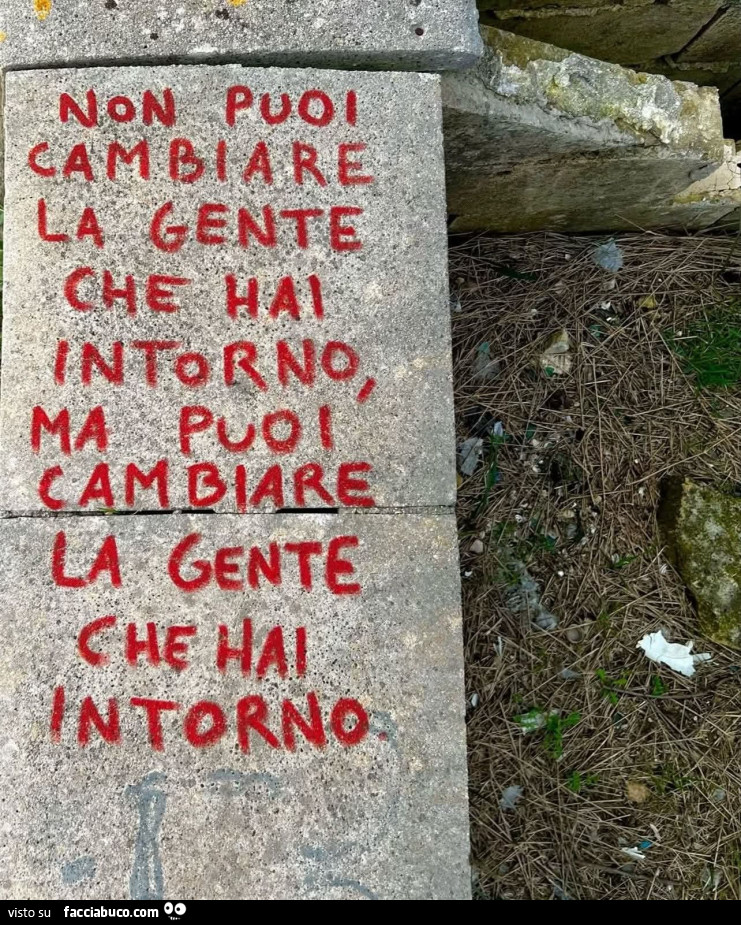 NON PUOI
CAMBIARE
LA GENTE
CHE HAI
INTORNO,
MA PUOI
CAMBIARE
LA GENTE
CHE HAI
INTORNO.
visto su facciabuco.com